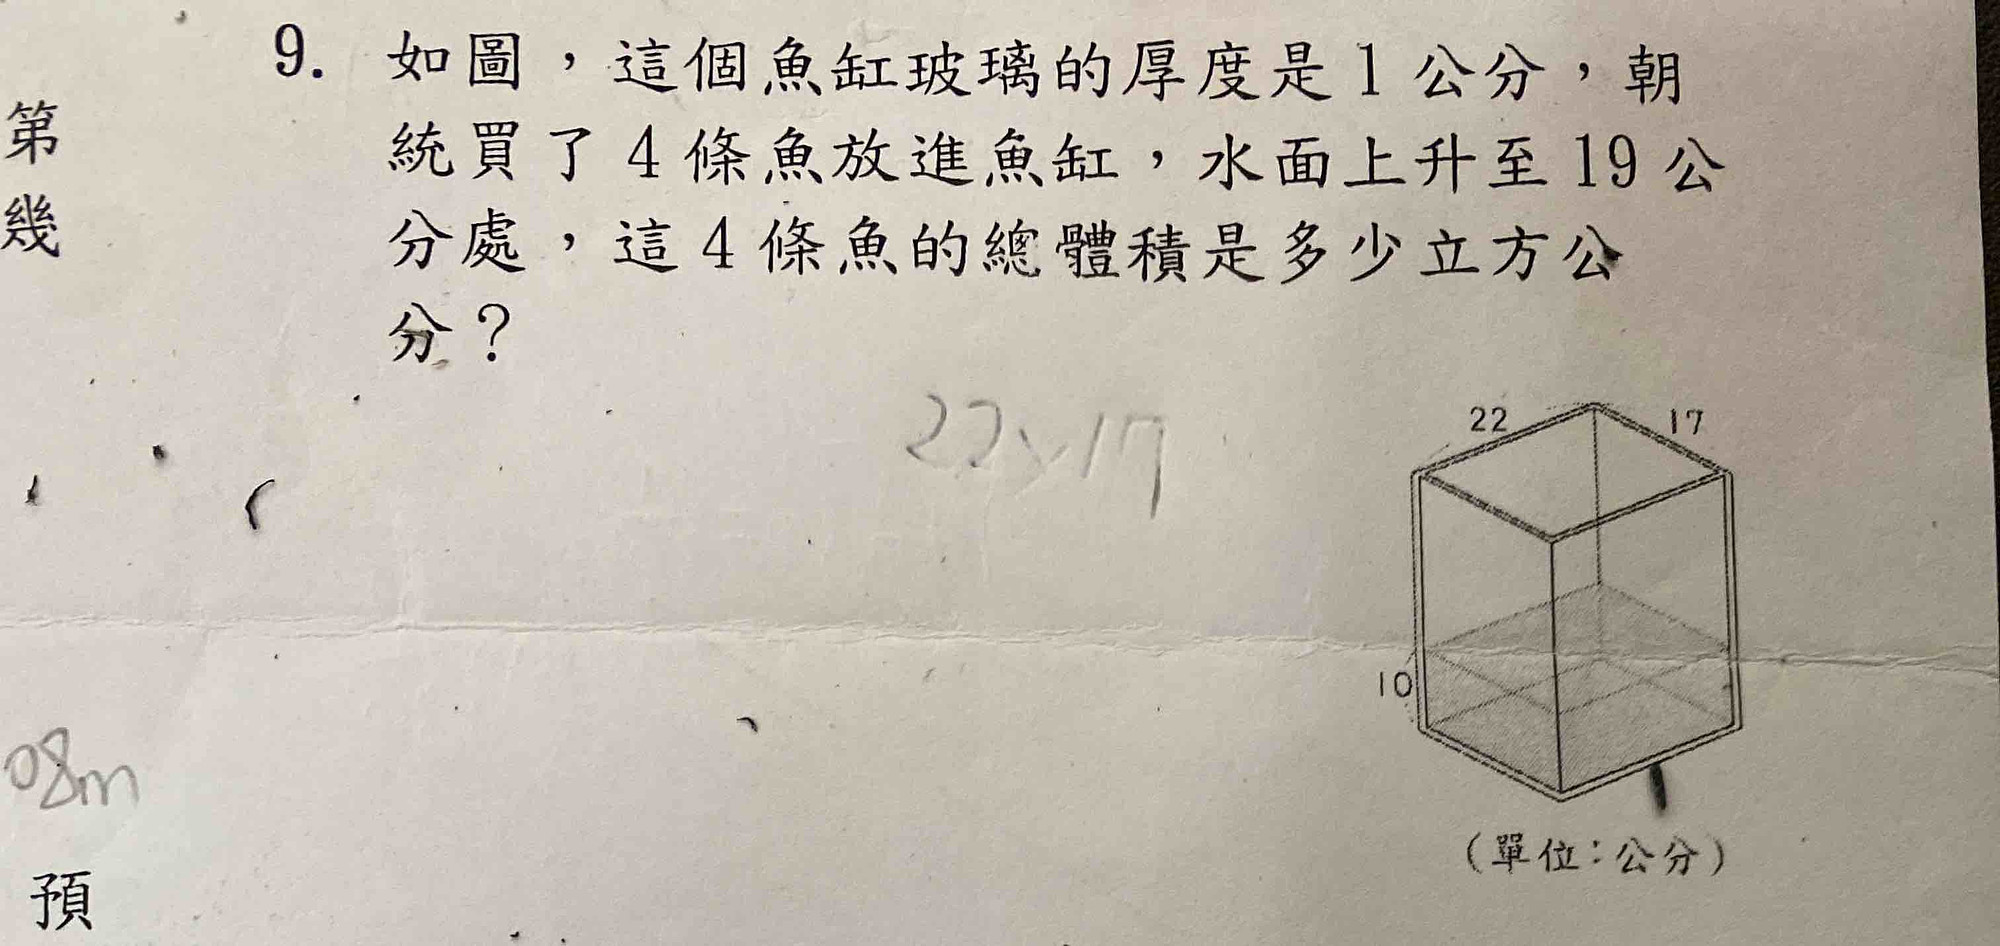 9. 如圖，這個魚缸玻璃的厚度是1公分，朝
統買了4條魚放進魚缸，水面上升至19公
分處，這4條魚的總體積是多少立方公
分？
22×17
22
17
10
（單位：公分）
第
幾
08m
預